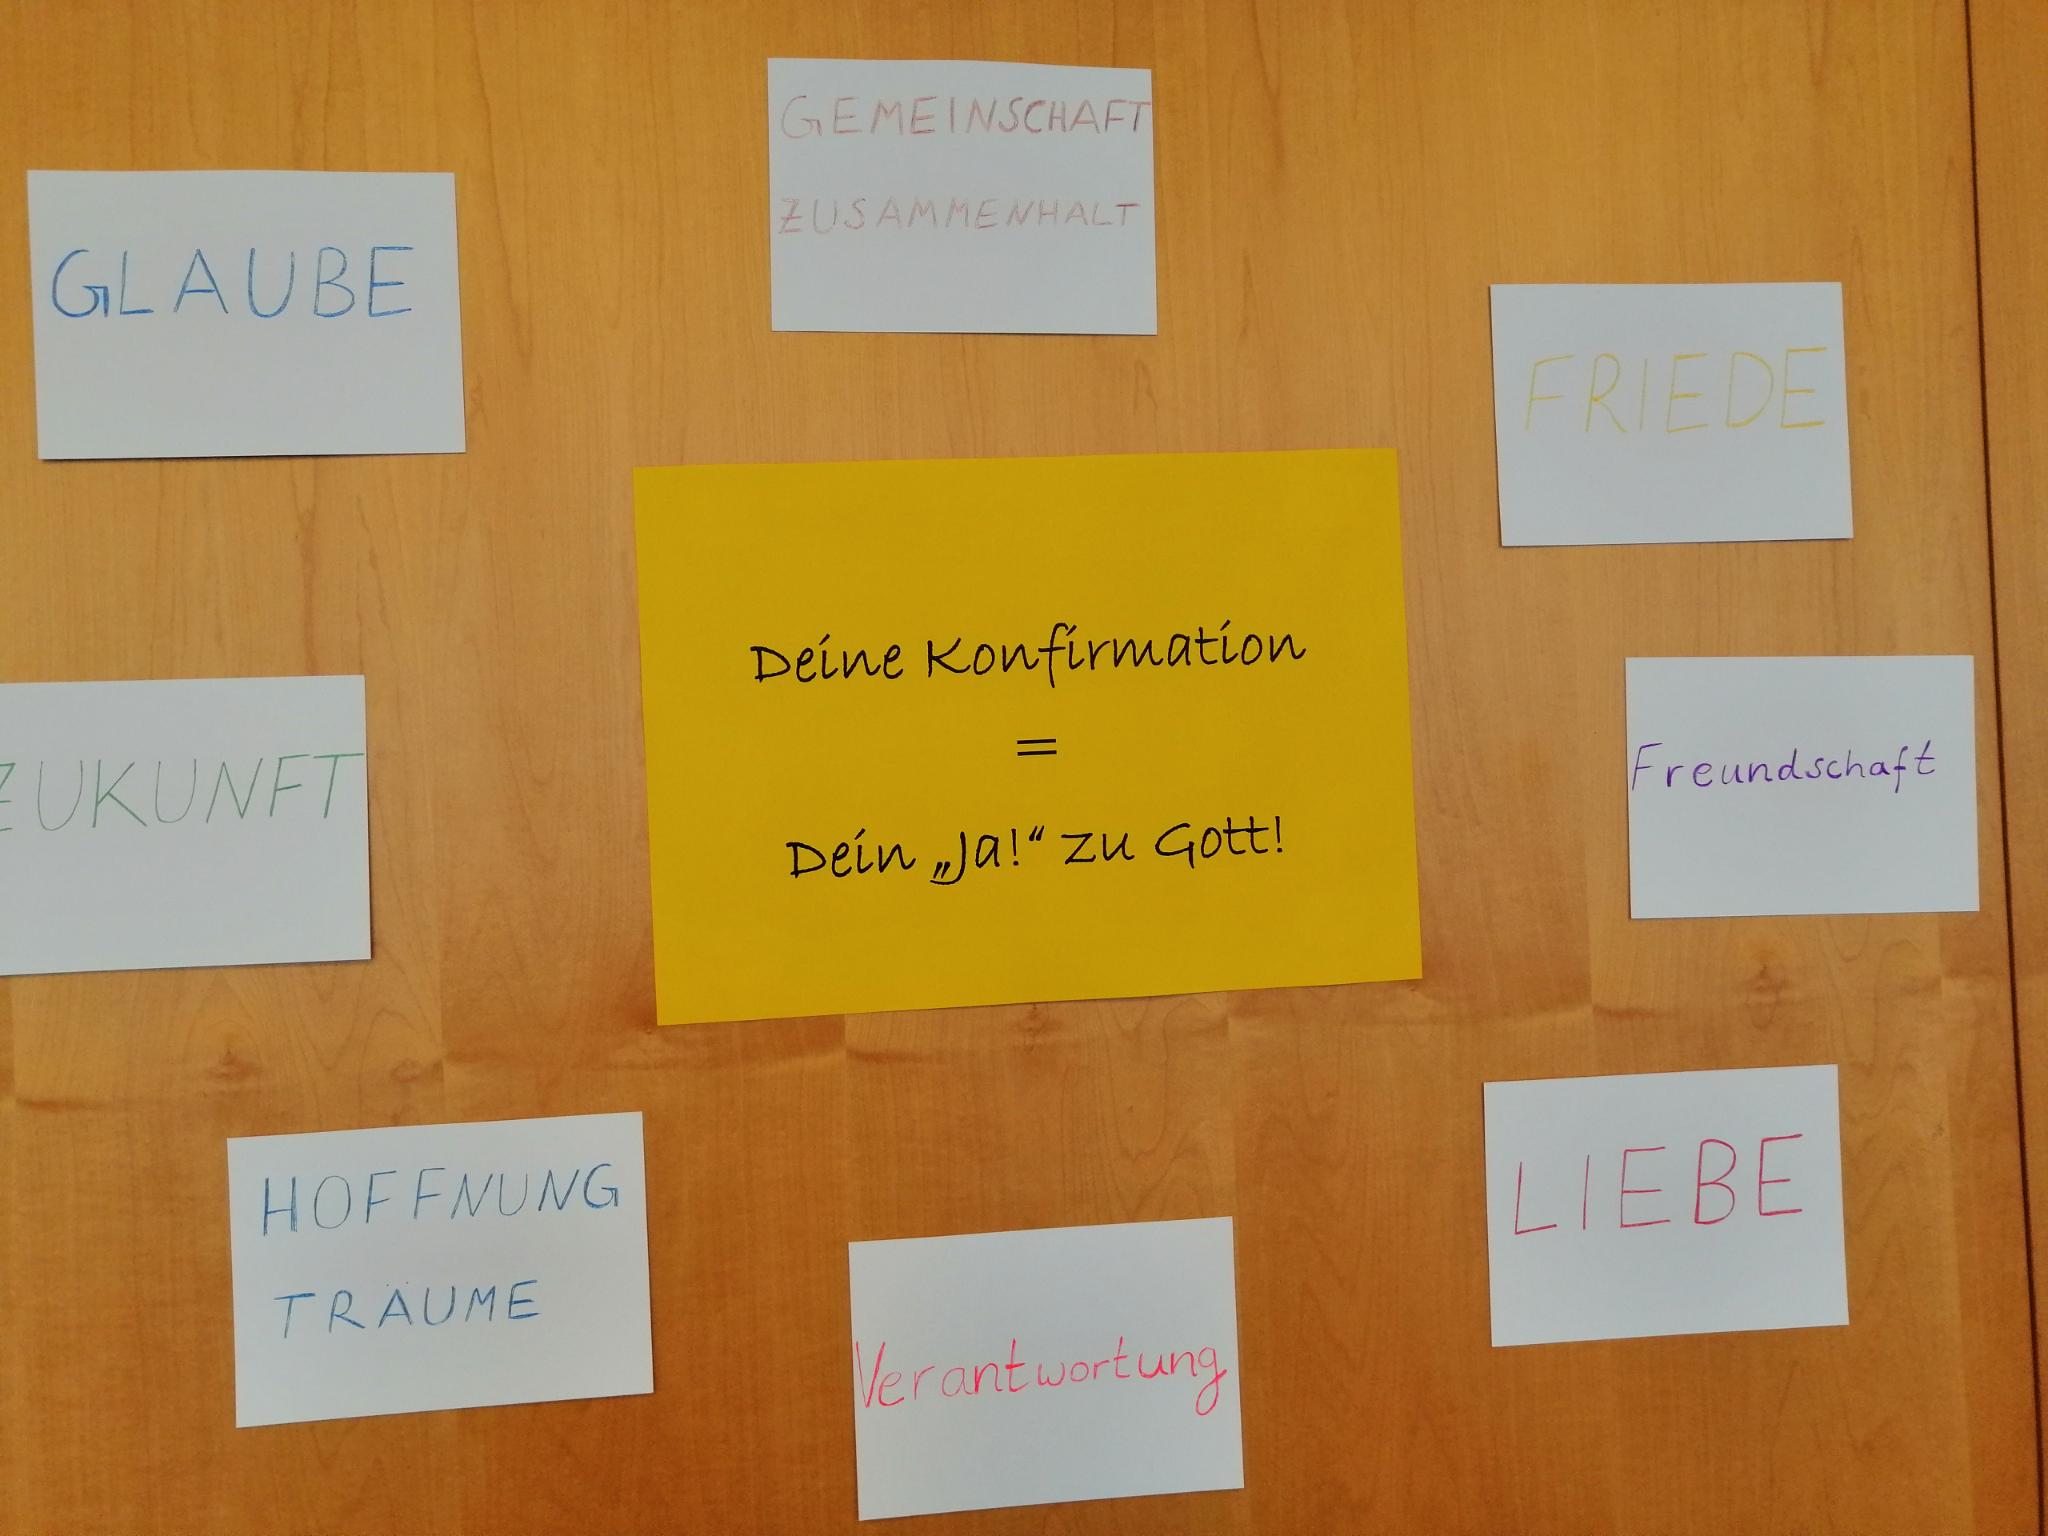 GEMEINSCHAFT
ZUSAMMENHALT
GLAUBE
FRIEDE
Deine Konfirmation
=
Dein „Ja!“ zu Gott!
ZUKUNFT
Freundschaft
HOFFNUNG
TRÄUME
LIEBE
Verantwortung